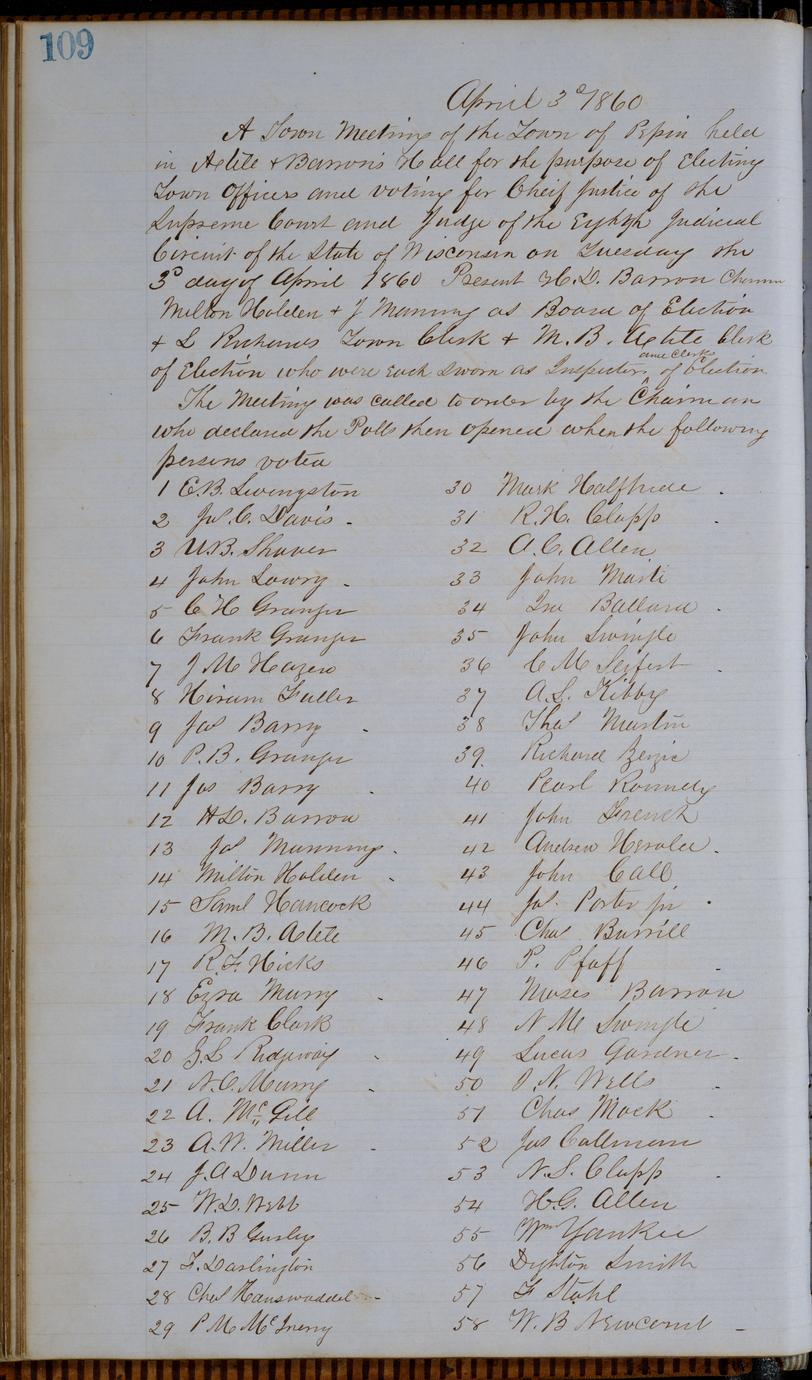 109
April 3d 1860
A Town Meeting of the Town of Pepin held
in Axtile & Barron's Hall for the purpose of Electing
Town Officers and voting for Cheif Justice of the
Supreme Court and Judge of the Eighth Judicial
Circuit of the State of Wisconsin on Tuesday the
3d day of April 1860 Present H.D. Barron Chairman
Milton Holden & J Manning as Board of Election
& L Richards Town Clerk & M.B. Axtile Clerk
and Clerks
of Election who were each sworn as Inspectors ^ of Election
The Meeting was called to order by the Chairman
who declared the Polls then opened when the following
persons voted
1 E.B. Livingston
2 Jas. C. Davis
3 U.B. Shaver
4 John Lowry
5 C H Granger
6 Frank Granger
7 J M Hazen
8 Hiram Fuller
9 Jas Barry
10 P.B. Granger
11 Jos Barry
12 H.D. Barron
13 Jas Manning
14 Milton Holden
15 Saml Hancock
16 M.B. Axtile
17 R.F. Hicks
18 Ezra Murry
19 Frank Clark
20 S.L Ridgway
21 N.C. Murry
22 A. McGill
23 A.W. Miller
24 J.A Dunn
25 W.D. Webb
26 B.B Gurley
27 F. Darlington
28 Chas
29 P M McInerny
30 Mark
31 R.H. Clapp
32 A.C. Allen
33 John Marti
34 Ira Ballard
35 John Swingle
36 C M Seifert
37 A.S. Kibby
38 Thos Martin
39. Richard
40 Pearl
41 John French
42 Andrew
43 John Call
44 Jas. Porter jr
45 Chas Burrill
46 P. Pfaff
47 Moses Barron
48 N M Swingle
49 Lucas Gardner
50 N. Wells
51 Chas Mack
52 Jas Callman
53 N.S. Clapp
54 H.G. Allen
55 Wm Yankee
56 Dighton Smith
57 F Stahl
58 W.B Newcomb